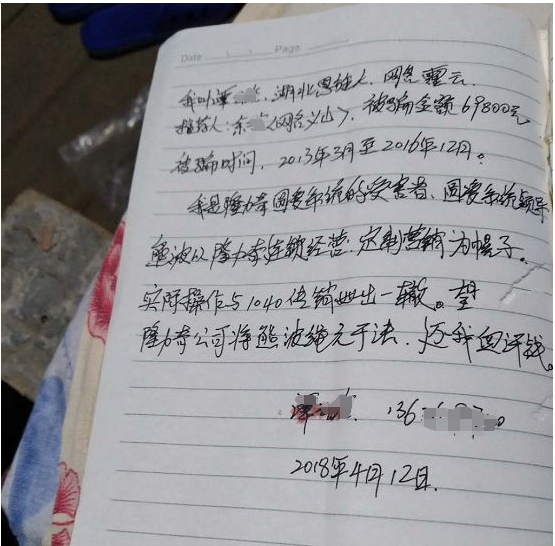 Date Page
我叫谭 湖北恩施人,网名疆云
推荐人:余 (网名义山),被骗金额69800元,
被骗时间,2013年3月至2016年12月。
我是隆力奇国爱系统的受害者,国爱系统领导
熊波以隆力奇连锁经营.定制营销为幌子.
实际操作与1040传销如出一辙。望
隆力奇公司将熊波绳之于法.还我血汗钱。
谭 136
2018年4月12日.